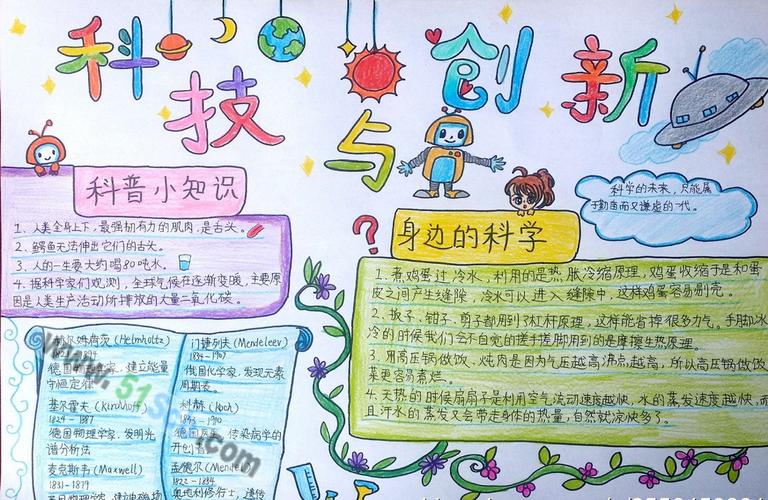 科技与创新
科普小知识
1、人类全身上下,最强韧有力的肌肉,是舌头。
2、鳄鱼无法伸出它们的舌头。
3、人的一生要大约喝80吨水。
4、据科学家们观测,全球气候在逐渐变暖,主要原
因是人类生产活动所排放的大量二氧化碳。
科学的未来,只能属
于勤奋而又谦虚的一代。
身边的科学
1、煮鸡蛋过冷水,利用的是热胀冷缩原理,鸡蛋收缩于是和蛋
皮之间产生缝隙,冷水可以进入缝隙中,这样鸡蛋容易剥壳。
2、扳子、钳子、剪子都用到了杠杆原理,这样能省掉很多力气。手脚冰
冷的时候我们会不自觉的搓手搓脚用到的是摩擦生热原理。
3、用高压锅做饭、炖肉是因为气压越高沸点越高,所以高压锅做饭
菜更容易煮烂。
4、天热的时候扇扇子是利用空气流动速度越快,水的蒸发速度越快,而
且汗水的蒸发又会带走身体的热量,自然就凉快多了。
赫尔姆荷茨(Helmholtz)
德国 建立能量
守恒定律
基尔霍夫(Kirchhoff)
1824-1887
德国物理学家,发明光
谱分析法
麦克斯韦(Maxwell)
1831-1879
门捷列夫(Mendeleev)
1834-1907
俄国化学家,发现元素
周期表。
科赫(Koch)
1843-1910
德国医生,传染病学的
开创者
孟德尔(Mendel)
1822-1884
奥地利修行士,遗传